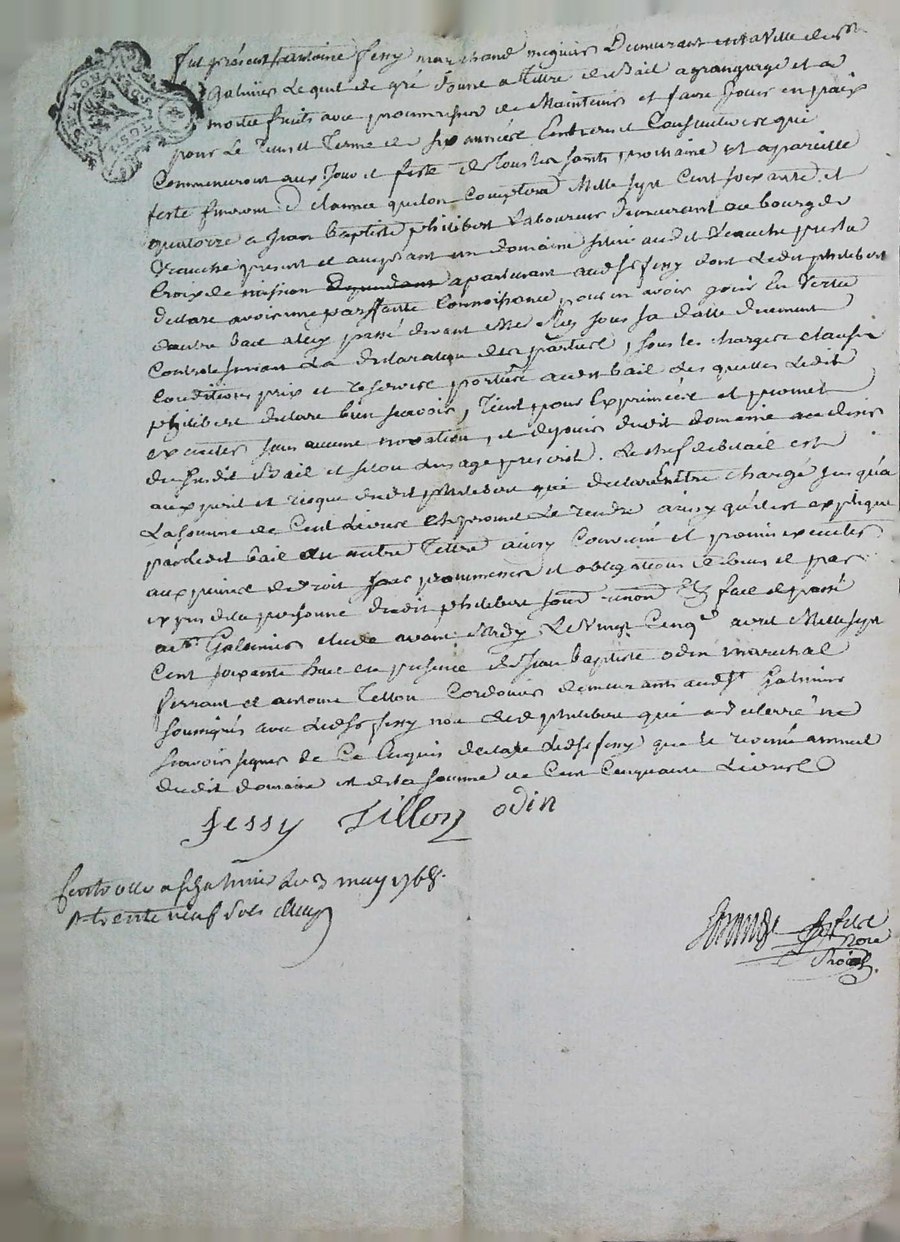 fut présent antoine fessy marchand megissier Demeurant en la Ville de st
Galmier Lequel de gré donne a tittre de Bail a grangeage et a
moitié fruits avec promesse de Maintenir et faire Jouir en paix
pour Le tems et terme de six années Entieres et Consecutives qui
Commenceront aux Jour et feste de Tous les saints prochaine et a pareille
feste finiront de Lannée que lon Comptera Mille sept Cent soixante et
quatorze a Jean Baptiste philibert Laboureur Demeurant au bourg de
Veauche present et acceptant un domaine situé audit Veauche pres la
Croix de mission apartenant audit sr fessy dont Ledit philibert
declare avoir une parfaitte Connoissance pour en avoir joui En Vertu
dautre bail a Eux passé devant Me sous sa datte duement
Controlé suivant La declaration des parties, sous les charges clauses
Conditions prix et reserves portées audit bail des quelles Ledit
philibert declare bien scavoir, tient pour Exprimées et promet
executer sans aucune novation, et de jouir dudit domaine au desir
du susdit Bail et selon Lusage prescrit. Le chef de betail est
aux peril et risque dudit philibert qui declare Estre chargé jusqu'a
La somme de Cent Livres Et promet Le rendre ainsy qu'il est expliqué
par ledit bail au autre tittre ainsy Convenu et promis executer
aux peines de droit par promesses et obligations de biens et par
expres de la personne dudit philibert fait et passé
a st Galmier etude avant Midy Le Vingt Cinq avril Mille sept
Cent soixante huit en presence de Jean baptiste odin marechal
ferrant et antoine Tillon Cordonier demeurants audit st Galmier
soussignés avec Ledit sr fessy non Ledit philibert qui a declaré ne
scavoir signer de Ce Enquis declare Ledit sr fessy que le revenu annuel
dudit domaine est de la somme de Cent Cinquante Livres
fessy Tillon odin
Controllé a st galmier Le 3 may 1768.
R trente neuf sols